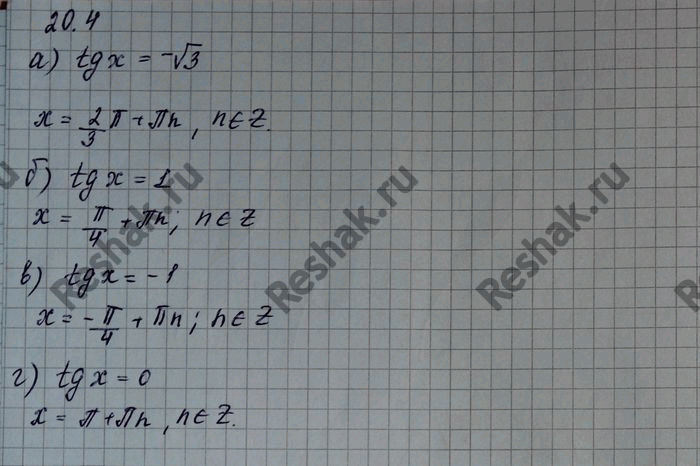 20.4
а) tg x = -√3
x = 2/3 π + πn, n∈Z.
б) tg x = 1
x = π/4 + πn; n∈Z
в) tg x = -1
x = -π/4 + πn; n∈Z
г) tg x = 0
x = π + πn, n∈Z.
Reshak.ru
Reshak.ru
Reshak.ru